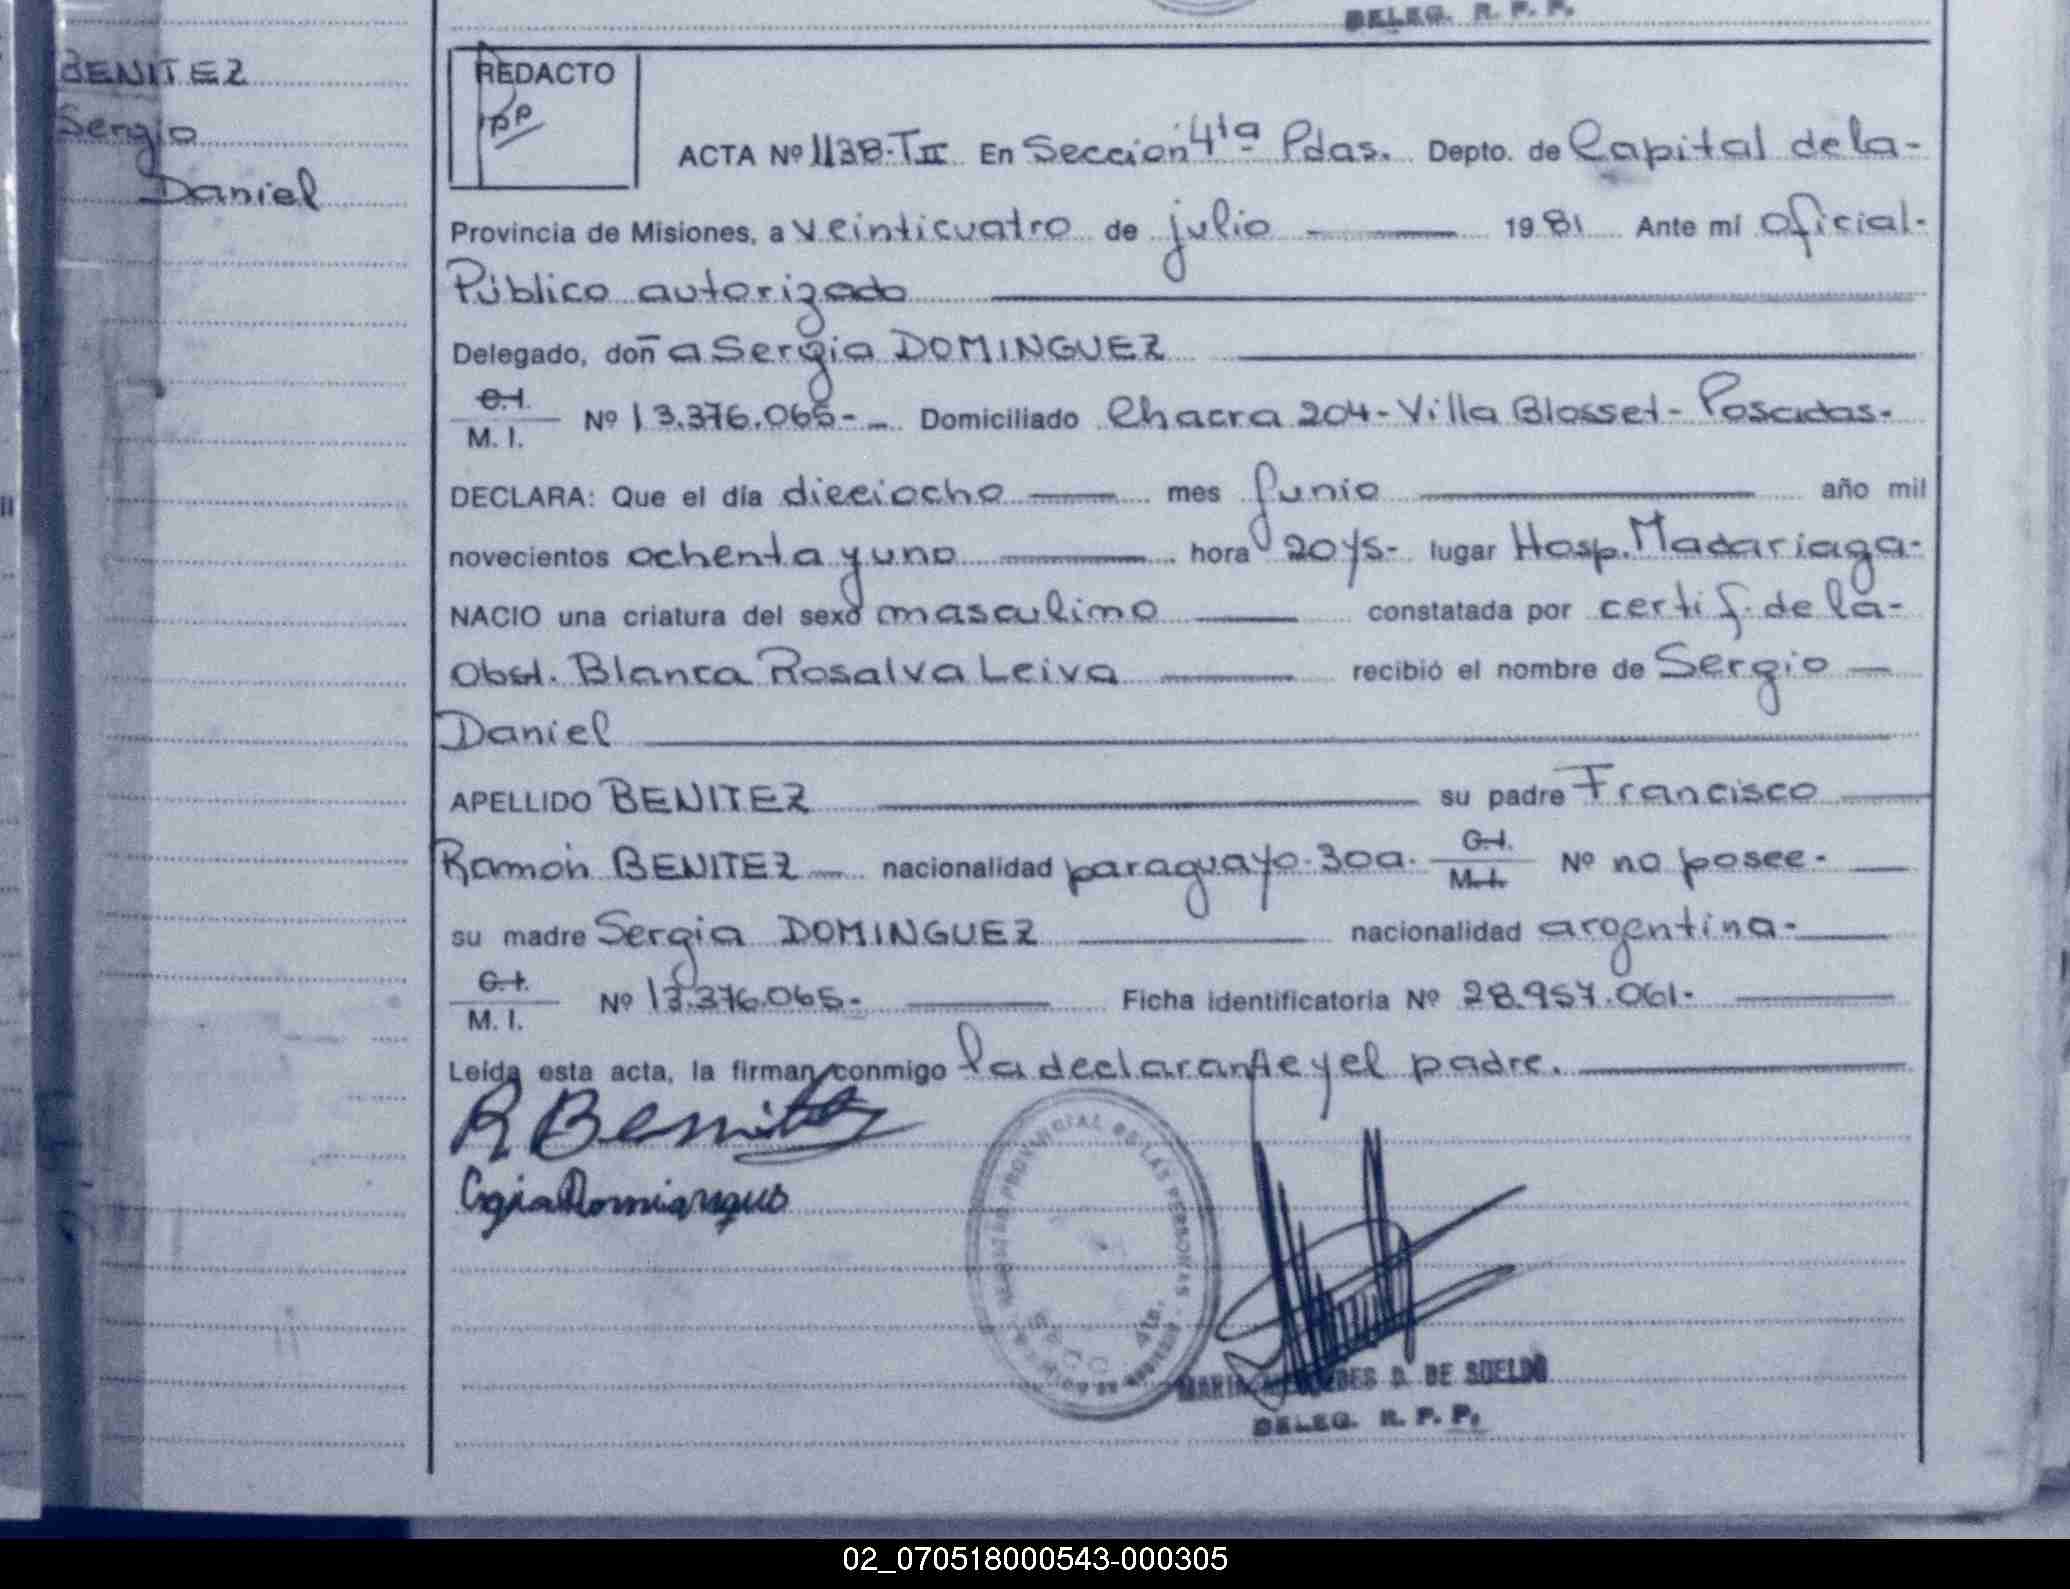 DELEG. R. P. P.
BENITEZ
Sergio
Daniel
REDACTO
PP
ACTA Nº 1138-TII En Sección 4ta Pdas. Depto. de Capital de la-
Provincia de Misiones, a veinticuatro de julio 1981 Ante mí oficial-
Público autorizado
Delegado, doña Sergia DOMINGUEZ
C.I. M. I. Nº 13.376.065- Domiciliado Chacra 204-Villa Blosset-Posadas-
DECLARA: Que el día dieciocho mes Junio año mil
novecientos ochenta y uno hora 20 lugar Hosp. Madariaga-
NACIO una criatura del sexo masculino constatada por certif. de la-
Obst. Blanca Rosalva Leiva recibió el nombre de Sergio
Daniel
APELLIDO BENITEZ su padre Francisco
Ramón BENITEZ nacionalidad paraguayo-30a. C.I. M.I. Nº no posee-
su madre Sergia DOMINGUEZ nacionalidad argentina-
C.I. M. I. Nº 13.376.065- Ficha identificatoria Nº 28.957.061-
Leída esta acta, la firman conmigo la declarante y el padre.
R Benitez
PROVINCIAL DE LAS PERSONAS
4ta.
MARIA MERCEDES D. DE SUELDO
DELEG. R. P. P.
02_070518000543-000305